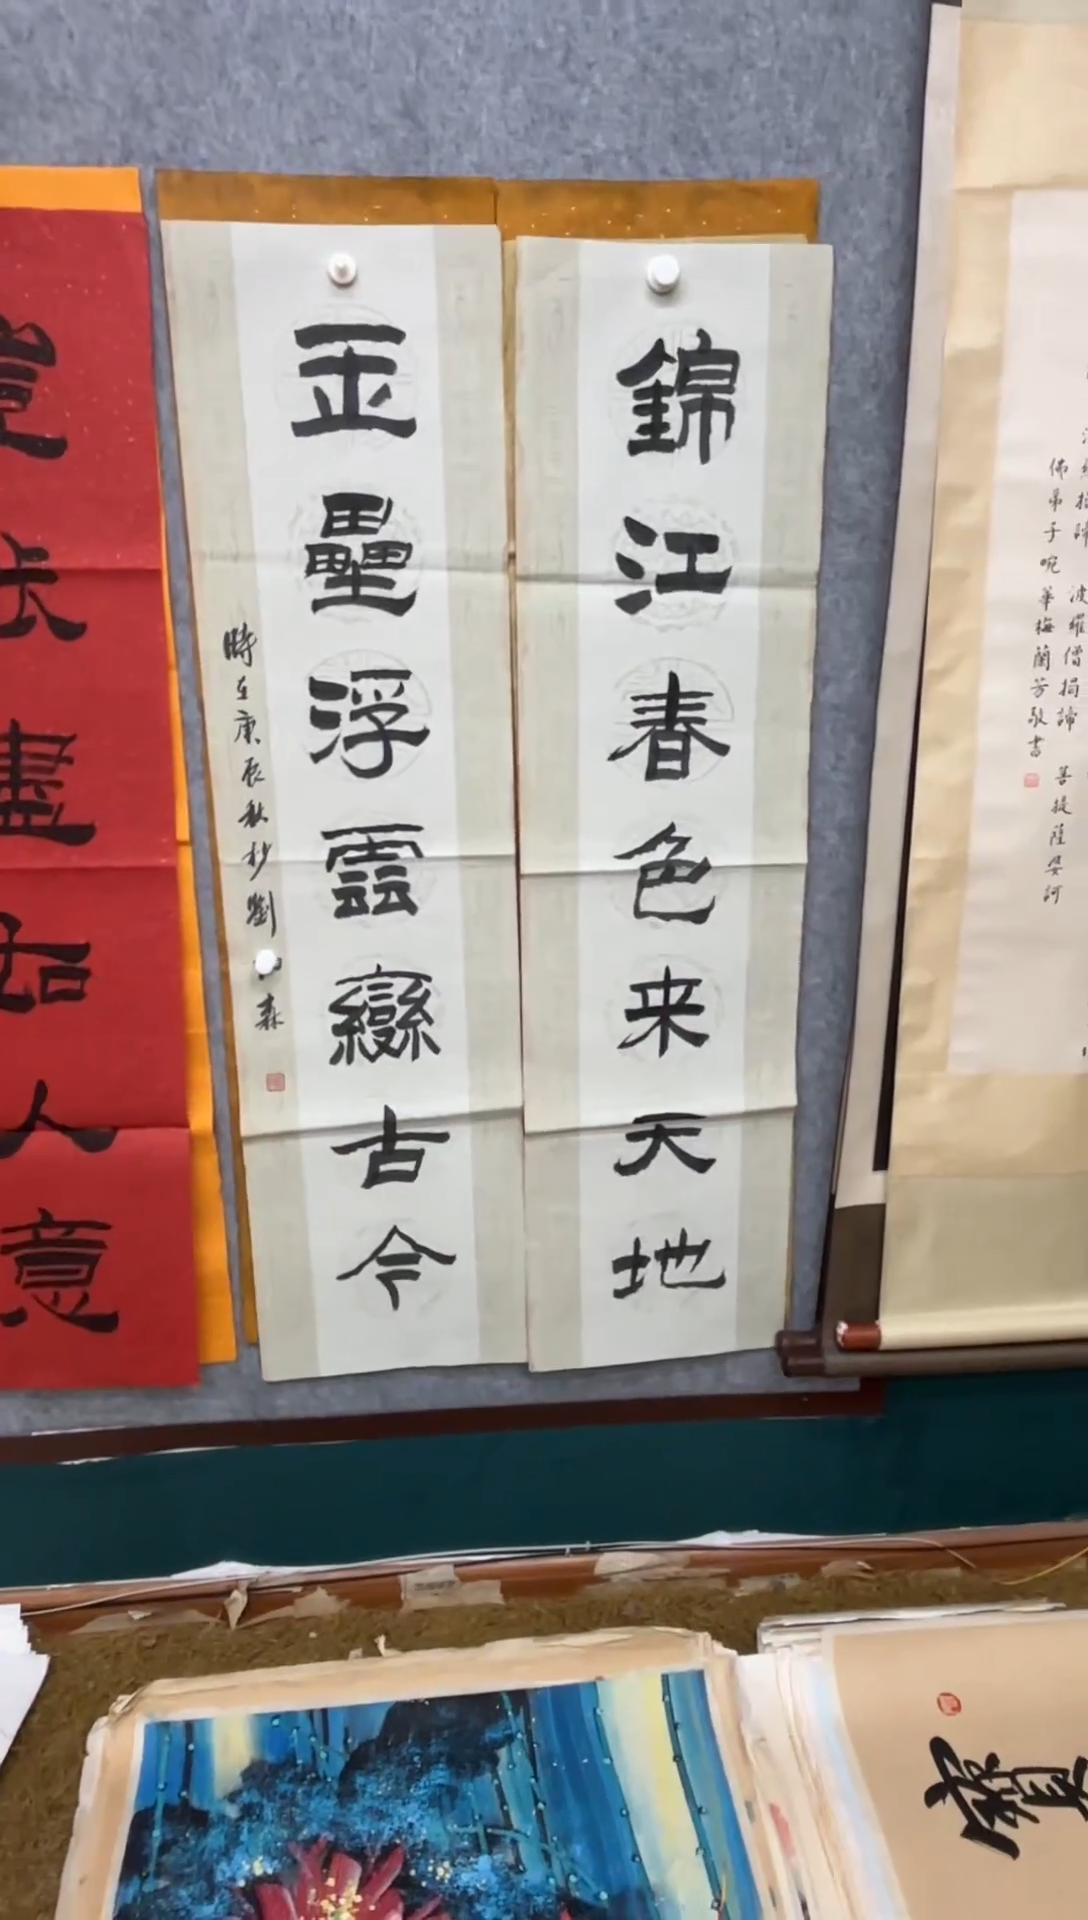 錦江春色来天地
玉壘浮雲變古今
時在庚辰秋杪劉
森
盡如人意
佛弟子
華梅蘭芳敬書
波羅僧揭諦
菩提薩婆訶
寶